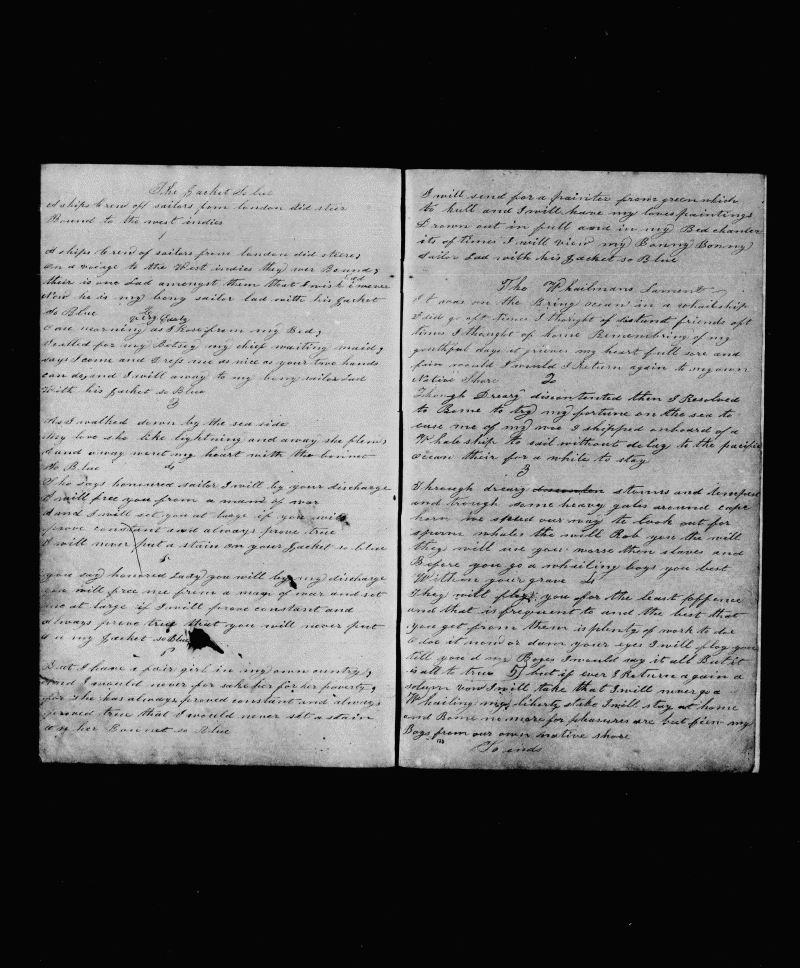 The Jacket So blue
A ships Crew off sailors from london did steer
Bound to the west indies
1
A ships Crew of sailors from london did steere,
on a voiage to the West indies they wer Bound,
their is one Lad amongst them that I wish i never
Now he is my bony sailor lad with his Jacket
So Blue
very Early
one morning as I Rose from my Bed,
I called for my Betsey my chief waiting maid,
says I come and Dress me as nice as your two hands
can do, and I will away to my bony sailor Lad
With his Jacket so Blue
3
As I walked down by the sea side
My love she like lightning and away she flew,
And away went my heart with the bonnet
So Blue
4
The says honoured sailor I will by your discharge
I will free you from a man of war
And I will set you at large if you will
prove constant and always prove true
I will never put a stain on your Jacket so blue
5
you say honored Lady you will by my discharge
you will free me from a man of war and set
me at large if I will prove constant and
always prove true that you will never put
a on my Jacket so Blue
But I have a fair girl in my own cuntry,
And I would never for sake her for her poverty,
for she has always proved constant and always
proved true that I would never set a stain
on her Bonnet so Blue
I will send for a painter from green which
to hull and I will have my loves paintings
Drown out in full and in my Bed chamber
its of times I will view my Bonny Bonny
Sailor Lad with his Jacket so Blue
The Whailmans Lament
I t was on the Bring ocean in a whailship
I did go oft times I thought of distant friends oft
times I thought of home Remembring of my
youthful days it grieves my heart full sore and
fain would I world I Return again to my own
Native Shore 2
Though Dreary discontented then I Resolved
to Rome to try my fortune on the sea to
ease me of my woe I shipped onboard of a
Whaleship to sail without delay to the pacific
ocean their for a while to stay
3
Through dreary storms and tempest
and trough some heavy gales around cape
horn we sped our way to look out for
sperm whales the will Rob you the will
they will use you worse then slaves and
Before you go a whailing boys you best
Within your grave 4
They will flog you for the least offence
and that is frequent to and the best that
you get from them is plenty of work to doe
doe it now or dam your eyes I will flog you
tell you d my Boyes I would say it all But it
is all to true 5 but if ever I Return again a
solumn vow I will take that I will never go a
Whailing my liberty stake I will stay at home
and Rome no more for pleasures are but few my
Boys from our own native shore
To ends